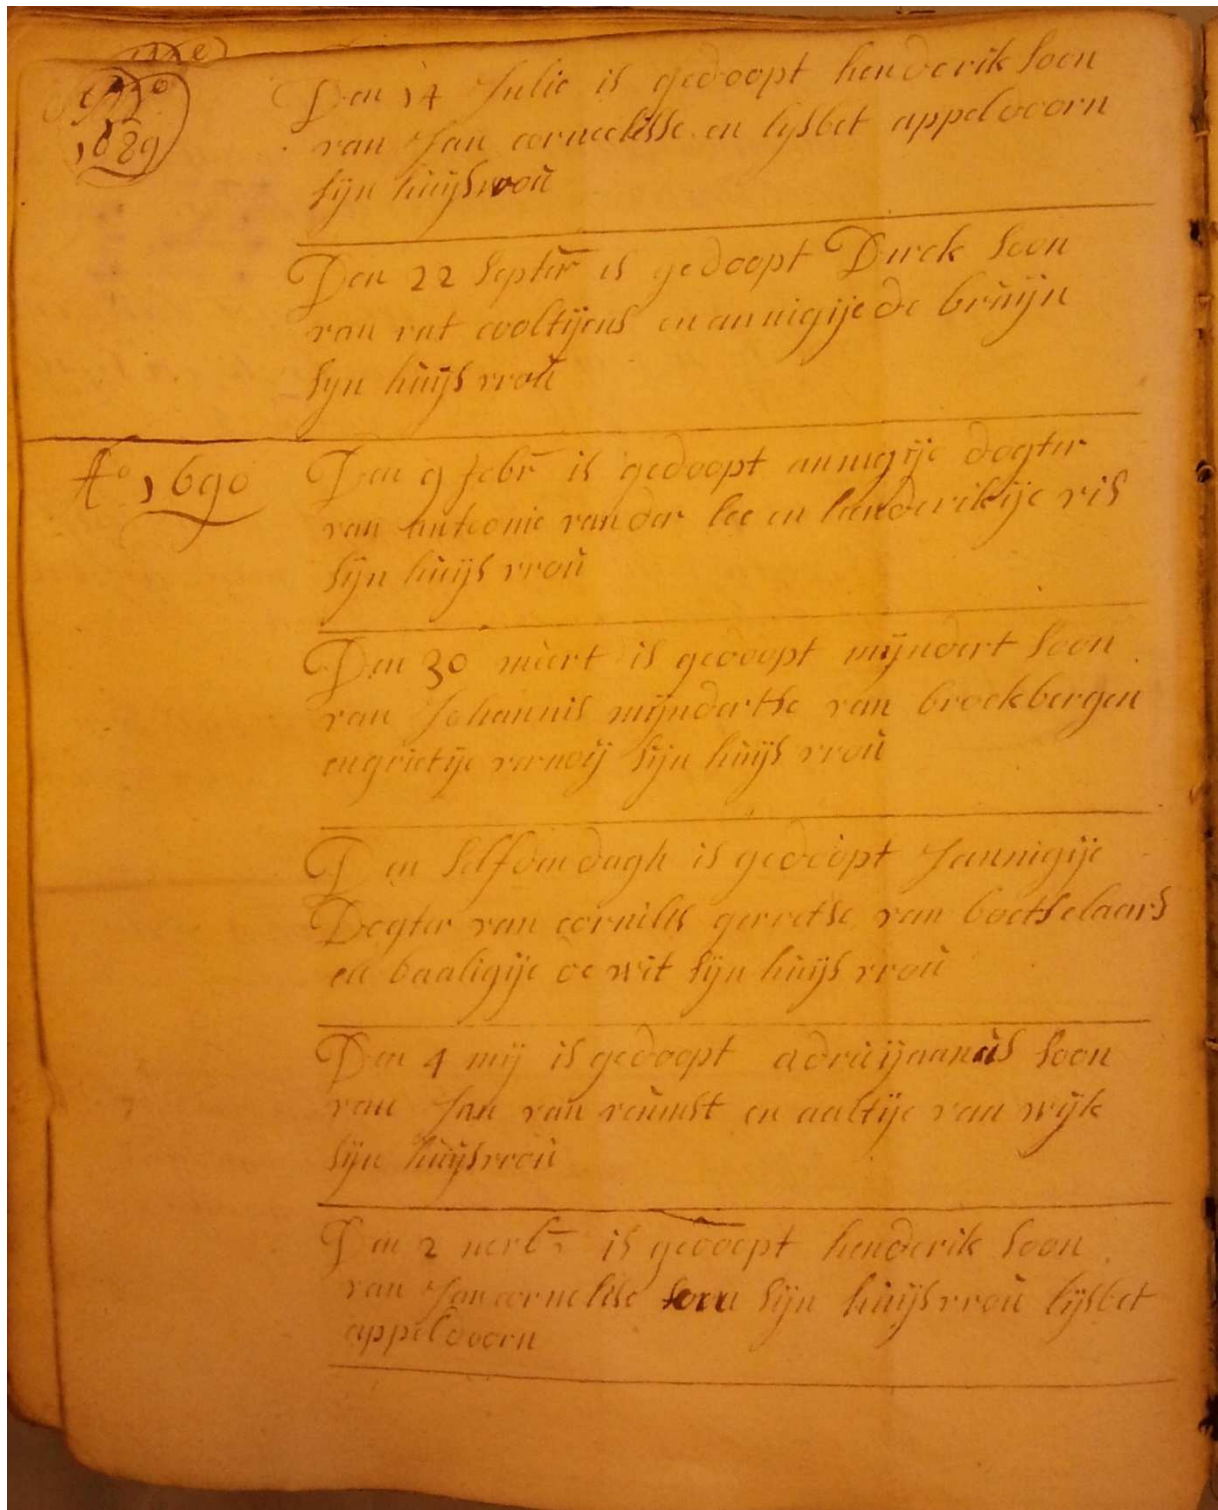 1689
Den 14 Julie is gedoopt henderik soon
van Jan corneelisse en lijsbet appeldoorn
sijn huijsvroú
Den 22 septer is gedoopt Dirck soon
van rut wooltijens en annigije de brúijn
sijn húijs vroú
Ao 1690
Den 9 febr is gedoopt annigije dogter
van anteonie van der lee en henderikije vis
sijn húijs vroú
Den 30 meert is gedoopt mijndert soon
van Johannis mijndertse van broekbergen
en grietije vernoij sijn húijs vroú
Den selfden dagh is gedoopt Jannigije
Dogter van cornilis gerretse van boetselaars
en baaligije de wit sijn húijs vroú
Den 4 mij is gedoopt adrijaanús soon
van Jan van reúmst en aaltije van wijk
sijn húijsvroú
Den 2 nerbr is gedoopt henderik soon
van Jan cornelise sijn húijsvroú lijsbet
appeldoorn